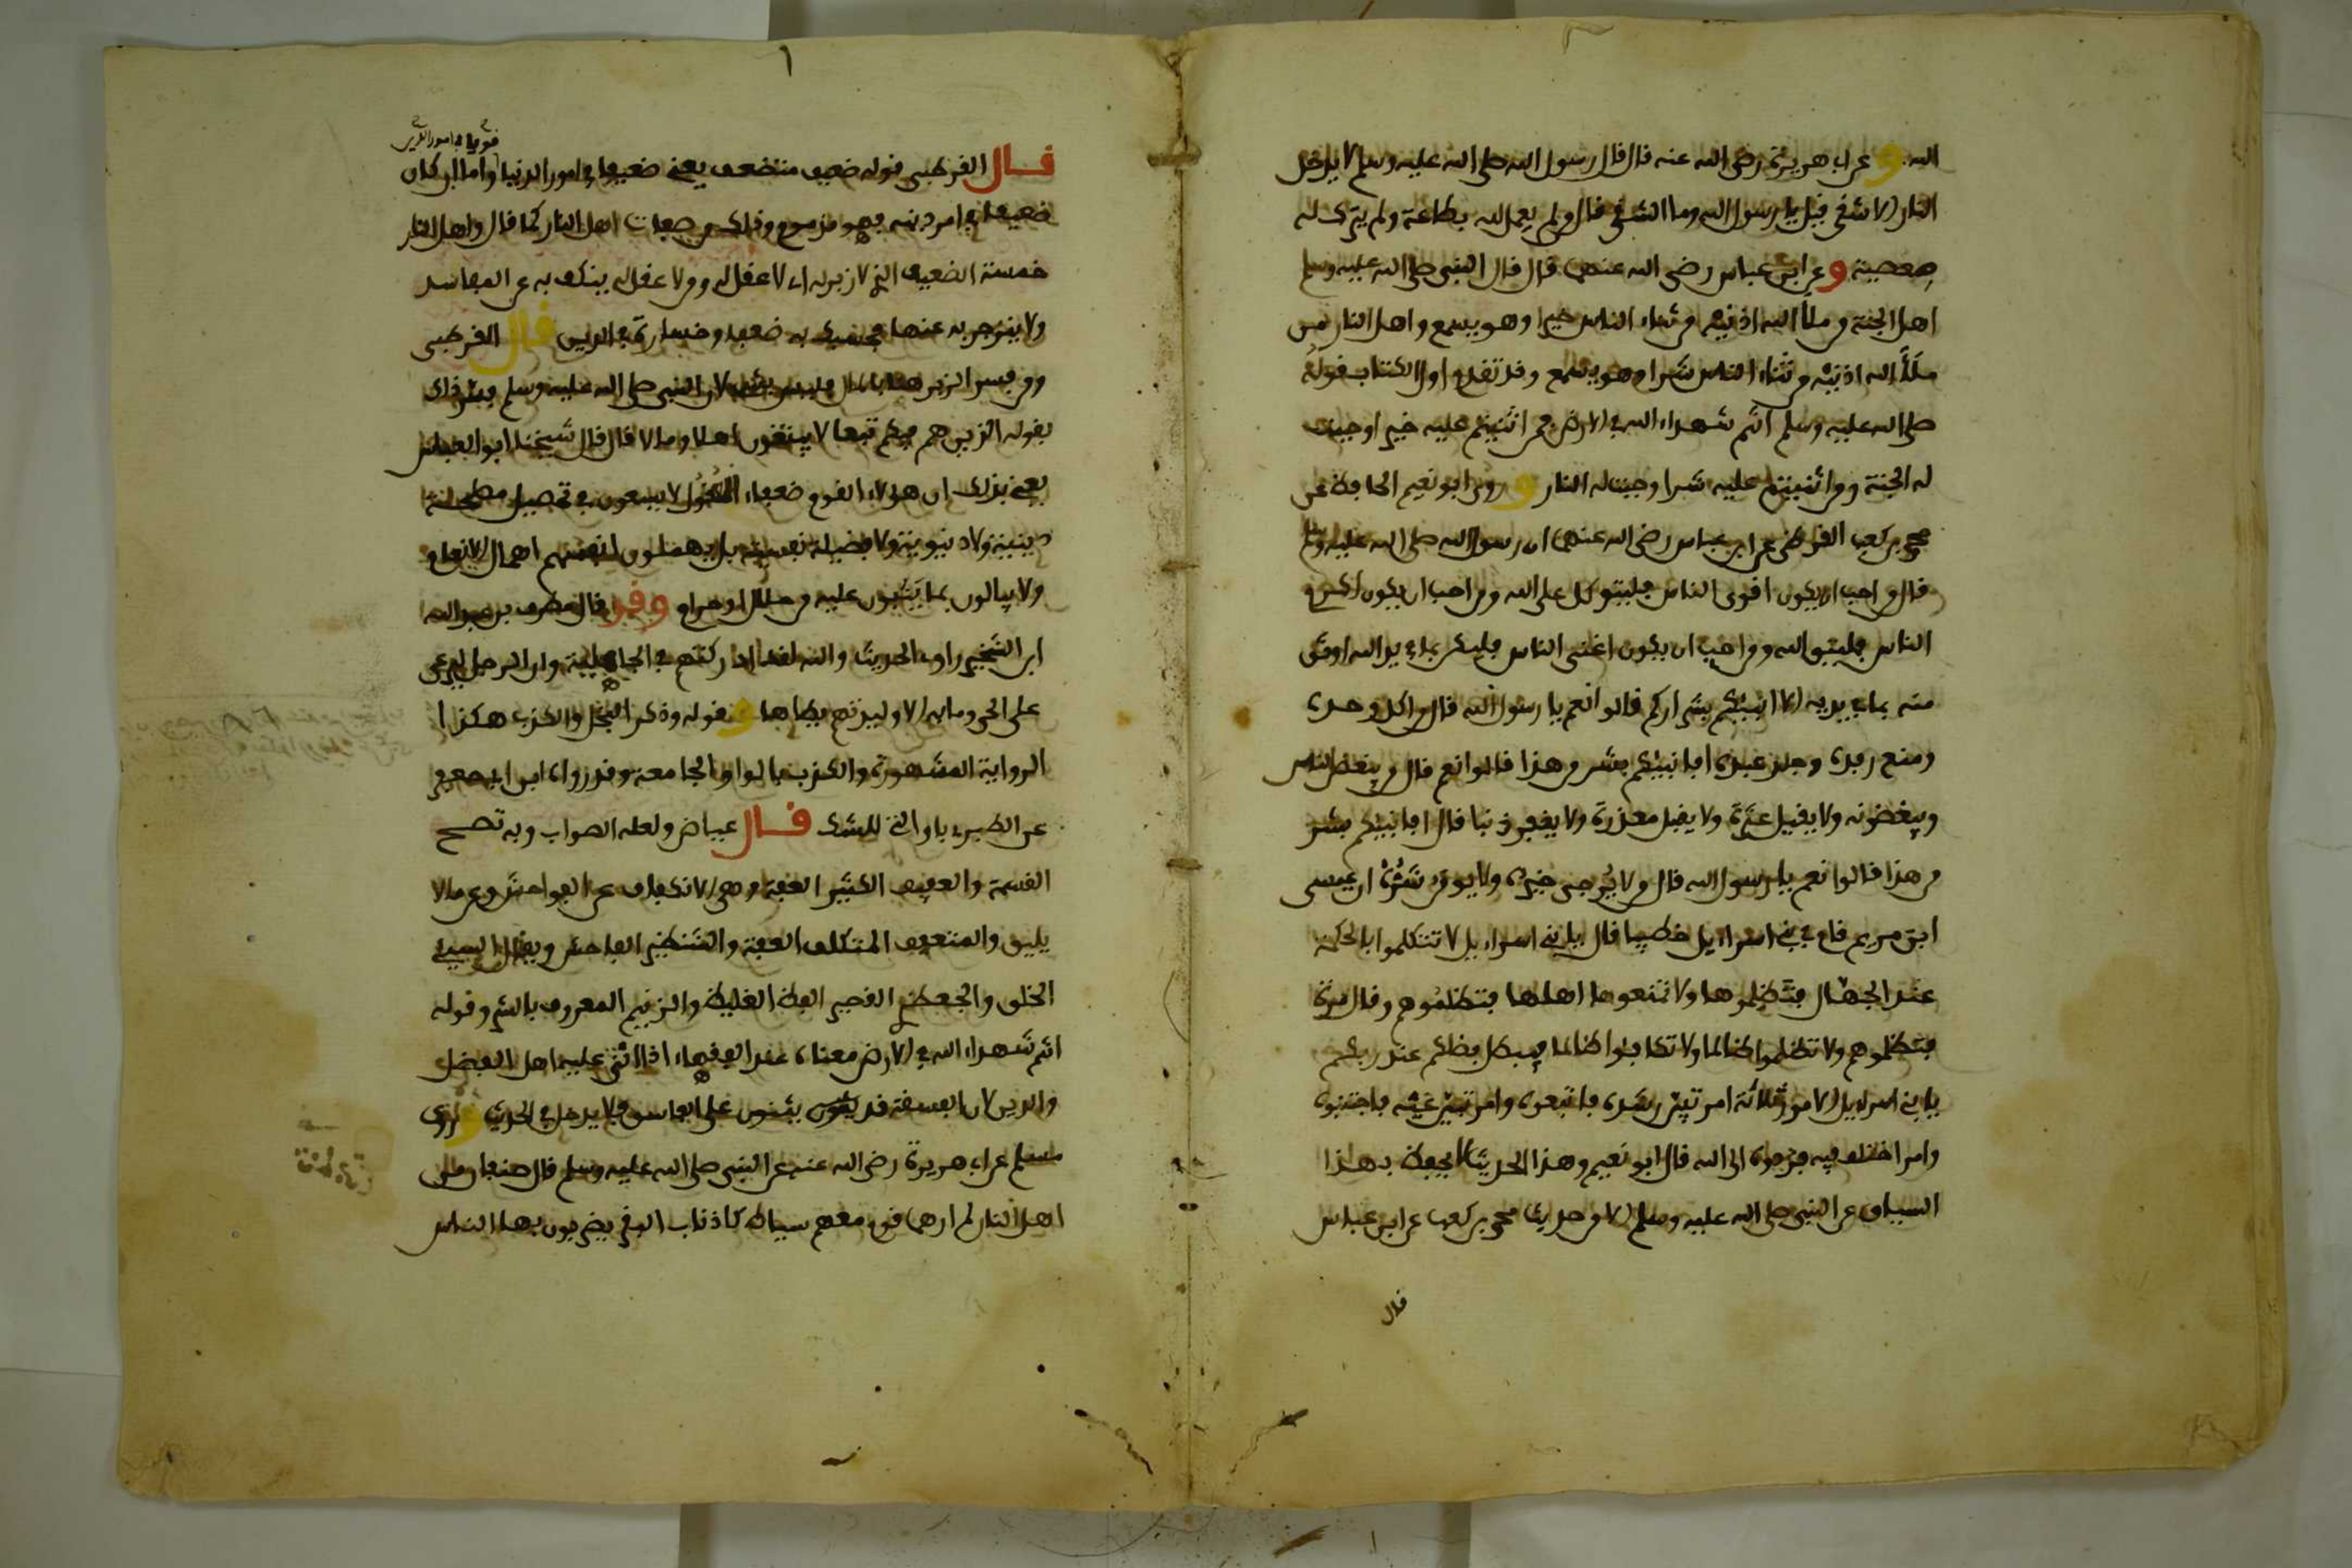 الله وعن ابي هريرة رضي الله عنه قال قال رسول الله صلى الله عليه وسلم لا يدخل
النار الا شقي قيل يا رسول الله وما الشقي قال من لم يعمل لله بطاعة ولم يترك له
معصية وعن ابن عباس رضي الله عنهما قال قال النبي صلى الله عليه وسلم
اهل الجنة من ملأ الله اذنيه من ثناء الناس خيرا وهو يسمع واهل النار من
ملأ الله اذنيه من ثناء الناس شرا وهو يسمع وقد تقدم اول الكتاب قوله
صلى الله عليه وسلم انتم شهداء الله في الارض فمن اثنيتم عليه خيرا وجبت
له الجنة ومن اثنيتم عليه شرا وجبت له النار وروى ابو نعيم الحافظ عن
محمد بن كعب القرظي عن ابن عباس رضي الله عنهما ان رسول الله صلى الله عليه وسلم
قال من احب ان يكون اقوى الناس فليتوكل على الله ومن احب ان يكون اكرم
الناس فليتق الله ومن احب ان يكون اغنى الناس فليكن بما في يد الله اوثق
منه بما في يديه الا انبئكم بشراركم قالوا نعم يا رسول الله قال من اكل وحده
ومنع رفده وجلد عبده افانبئكم بشر من هذا قالوا نعم قال من يبغض الناس
ويبغضونه ولا يقيل عثرة ولا يقبل معذرة ولا يغفر ذنبا قال افانبئكم بشر
من هذا قالوا نعم يا رسول الله قال من لا يرجى خيره ولا يومن شره ان عيسى
ابن مريم قام في بني اسراءيل خطيبا قال يا بني اسراءيل لا تتكلموا بالحكمة
عند الجهال فتظلموها ولا تمنعوها اهلها فتظلموهم وقال مرة
فتظلموهم ولا تظلموا ظالما ولا تكافئوا ظالما فيبطل فضلكم عند ربكم
يا بني اسراءيل الامور ثلاثة امر تبين رشده فاتبعوه وامر تبين غيه فاجتنبوه
وامر اختلف فيه فردوه الى الله قال ابو نعيم وهذا الحديث لا يحفظ بهذا
السياق عن النبي صلى الله عليه وسلم الا من حديث محمد بن كعب عن ابن عباس
قال
قويا في امور الدين
قال القرطبي قوله ضعيف متضعف يعني ضعيفا في امور الدنيا واما ان كان
ضعيفا في امر دينه فهو مذموم وذلك من صفات اهل النار كما قال واهل النار
خمسة الضعيف الذي لا زبر له اي لا عقل له ومن لا عقل له ينكف به عن المفاسد
ولا ينزجر به عنها فحسبك به ضعفا وخسارة في الدين قال القرطبي
ومن فسر الزبر هنا بالمال فليس بشيء لان النبي صلى الله عليه وسلم فسر ذلك
بقوله الذين هم فيكم تبعا لا يبتغون اهلا ولا مالا قال شيخنا ابو العباس
يعني بذلك ان هؤلاء القوم ضعفاء العقول لا يسعون في تحصيل مصلحة
دينية ولا دنيوية ولا فضيلة نفسية بل يهملون انفسهم اهمال الانعام
ولا يبالون بما يثبون عليه من حلال او حرام وقد قال مطرف بن عبد الله
ابن الشخير راوي الحديث والله لقد ادركتهم في الجاهلية وان الرجل ليرعى
على الحي وما به الا وليدتهم يطاها وقوله وذكر البخل والكذب هكذا
الرواية المشهورة والكذب بالواو الجامعة وقد رواه ابن ابي جعفر
عن الطبري باو التي للشك قال عياض ولعله الصواب وبه تصح
القسمة والعفيف الكثير العفة وهي الانكفاف عن الفواحش وعن ما لا
يليق والمتعفف المتكلف العفة والشنظير الفاحش ويقال السيئ
الخلق والجعظري القصير الفظ الغليظ والزنيم المعروف بالشر وقوله
انتم شهداء الله في الارض معناه عند الفقهاء اذا اثنى عليه اهل الفضل
والدين لان الفسقة قد يثنون على الفاسق فلا يدخل في الحديث وروى
مسلم عن ابي هريرة رضي الله عنه عن النبي صلى الله عليه وسلم قال صنفان من
اهل النار لم ارهما قوم معهم سياط كاذناب البقر يضربون بها الناس